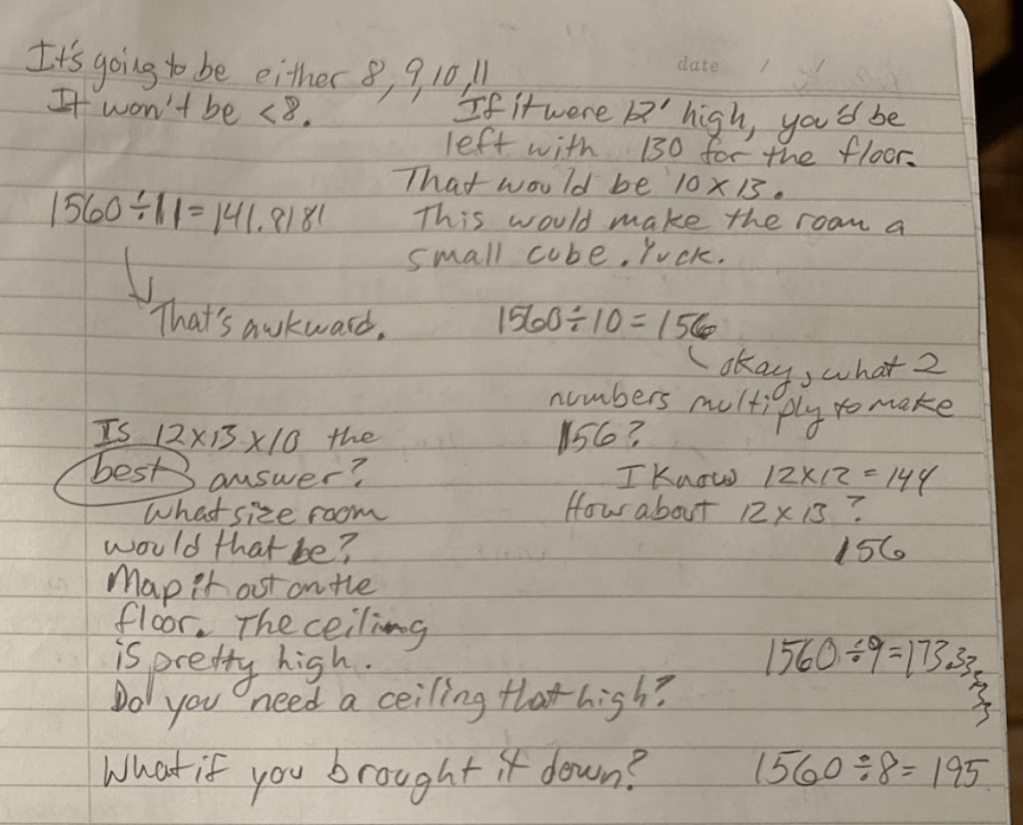 date / /
It's going to be either 8, 9, 10, 11
It won't be <8.
If it were 12' high, you'd be
left with 130 for the floor.
That would be 10 x 13.
This would make the room a
small cube. Yuck.
1560÷11=141.8181
That's awkward.
1560÷10=156
okay, what 2
numbers multiply to make
156?
I know 12x12=144
How about 12x13?
156
Is 12x13x10 the
best answer?
What size room
would that be?
Map it out on the
floor. The ceiling
is pretty high.
Do you need a ceiling that high?
What if you brought it down?
1560÷9=173.33333
1560÷8=195